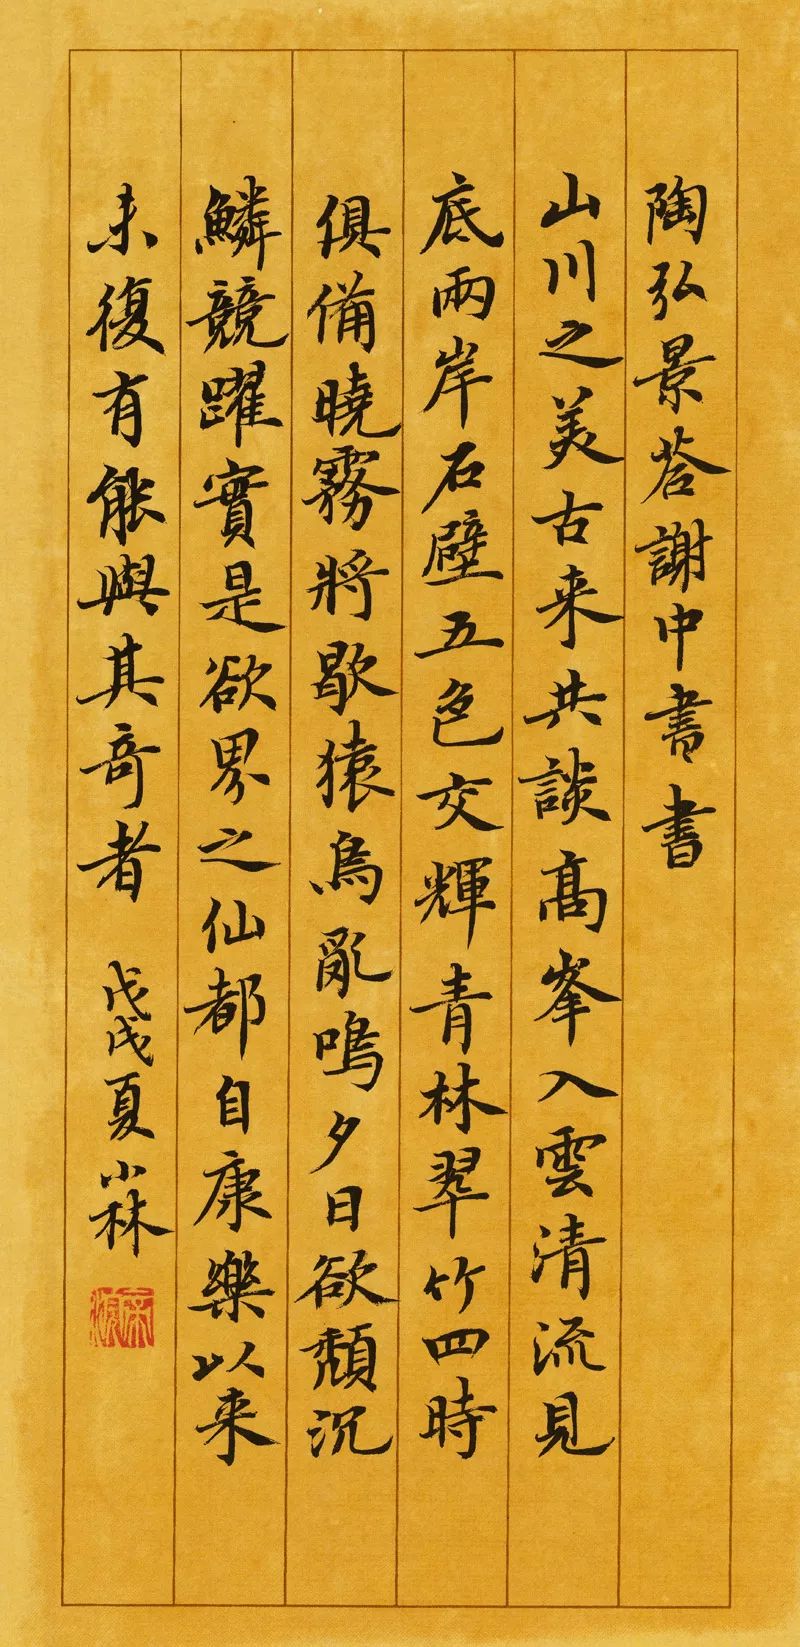 陶弘景荅謝中書書
山川之美古来共談高峯入雲清流見
底兩岸石壁五色交輝青林翠竹四時
俱備曉霧將歇猿鳥亂鳴夕日欲頽沉
鱗競躍實是欲界之仙都自康樂以来
未復有能與其奇者
戊戌夏小林